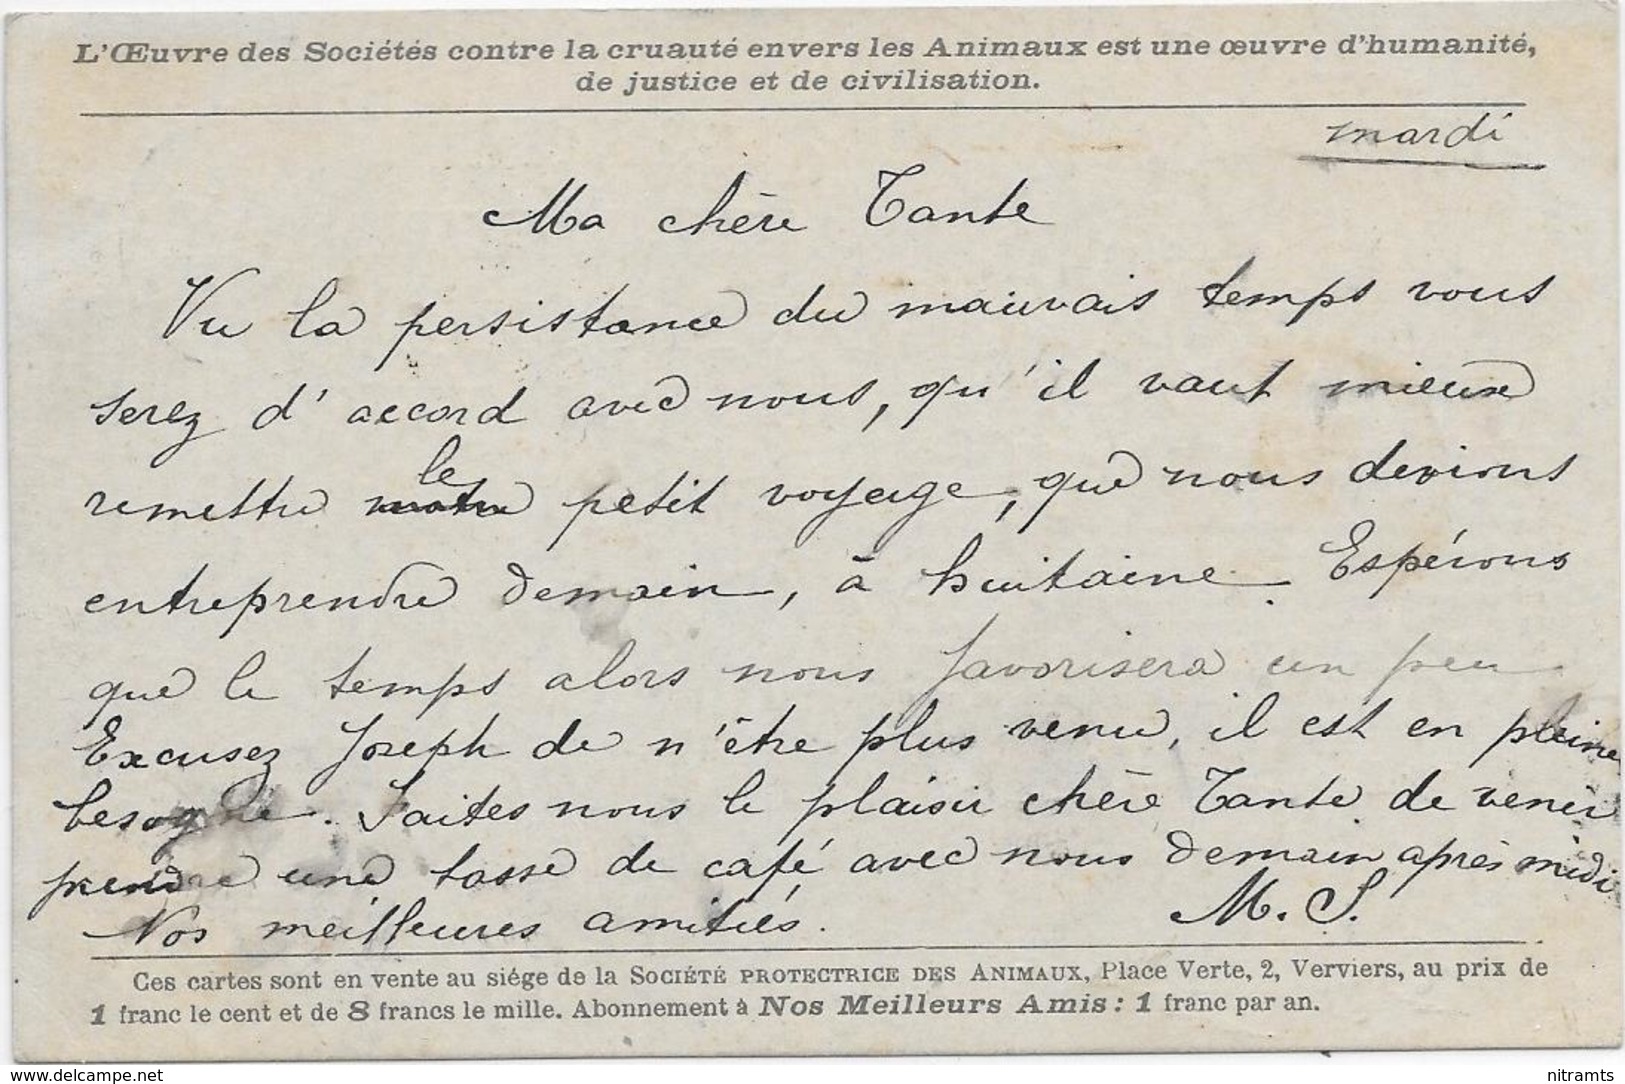 L'Œuvre des Sociétés contre la cruauté envers les Animaux est une œuvre d'humanité,
de justice et de civilisation.
mardi
Ma chère Tante
Vu la persistance du mauvais temps vous
serez d'accord avec nous, qu'il vaut mieux
remettre le petit voyage, que nous devions
entreprendre demain, à huitaine. Espérons
que le temps alors nous favorisera un peu
Excusez Joseph de n'être plus venu, il est en pleine
besogne. Faites nous le plaisir chère Tante de venir
prendre une tasse de café avec nous demain après midi
Nos meilleures amitiés. M. S.
Ces cartes sont en vente au siége de la SOCIÉTÉ PROTECTRICE DES ANIMAUX, Place Verte, 2, Verviers, au prix de
1 franc le cent et de 8 francs le mille. Abonnement à Nos Meilleurs Amis : 1 franc par an.
https://www.delcampe.net
nitramts